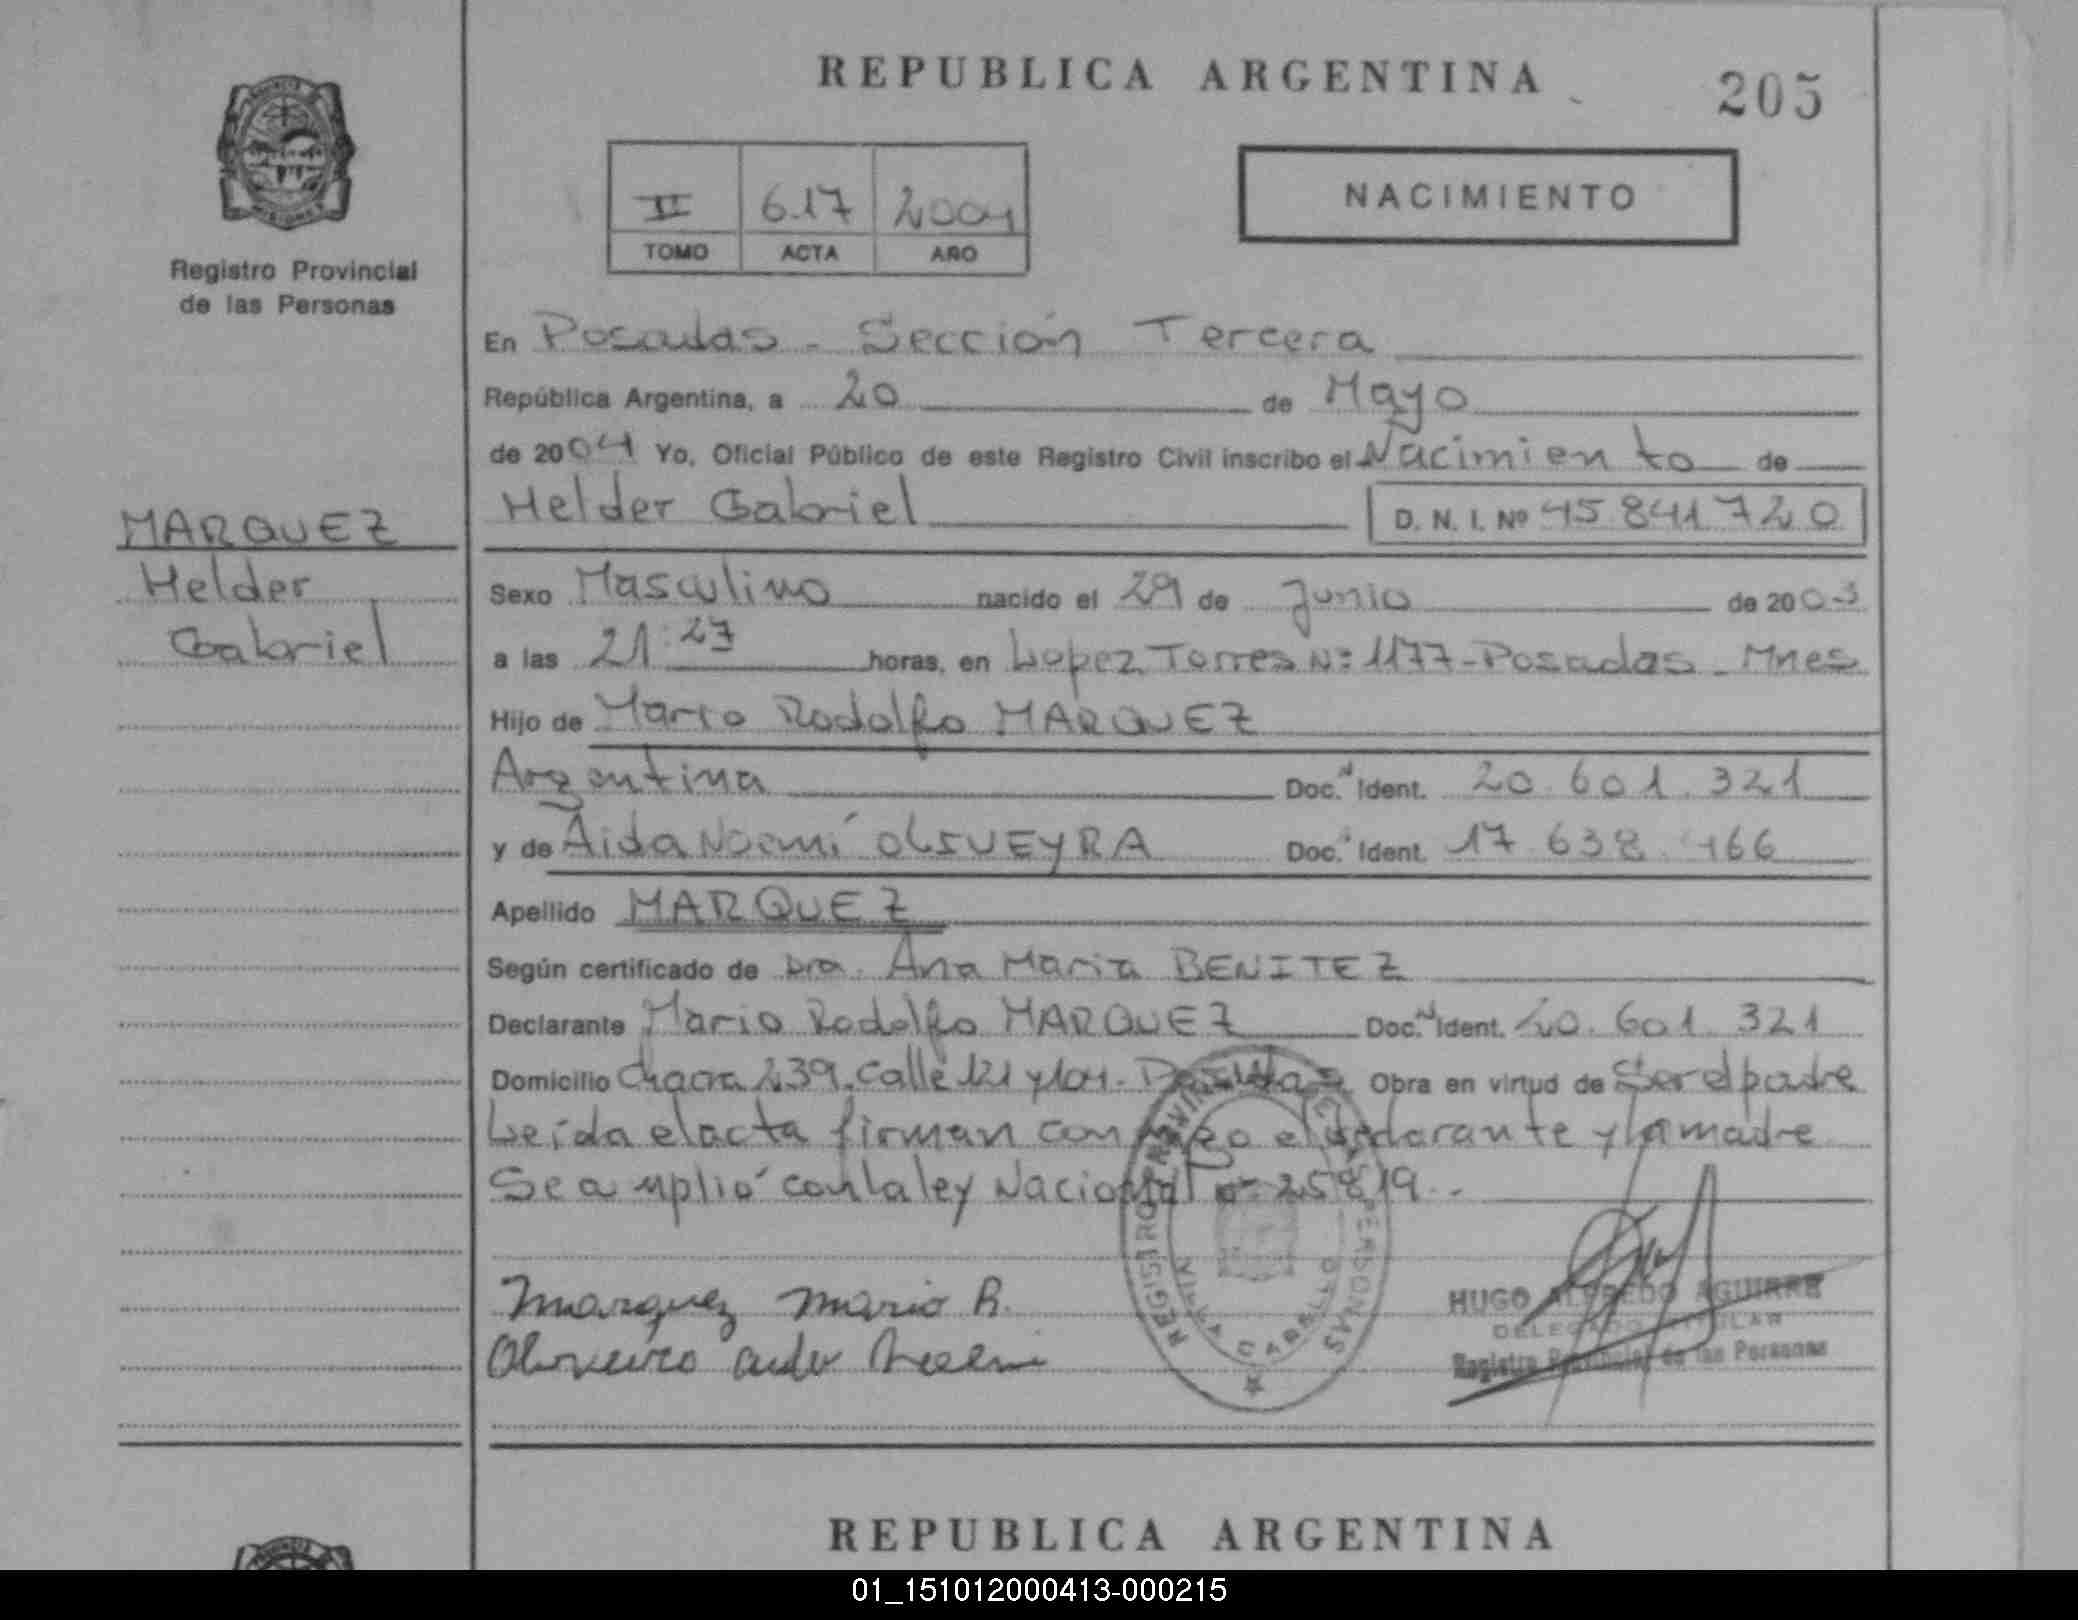 REPUBLICA ARGENTINA
205
II 617 2004
TOMO ACTA AÑO
NACIMIENTO
Registro Provincial
de las Personas
En Posadas - Sección Tercera
República Argentina, a 20 de Mayo
de 2004 Yo, Oficial Público de este Registro Civil inscribo el Nacimiento de
Helder Gabriel D. N. I. Nº 45 841 720
MARQUEZ
Helder
Gabriel
Sexo Masculino nacido el 29 de Junio de 2003
a las 21:27 horas, en Lopez Torres Nº 1177 - Posadas - Mnes
Hijo de Mario Rodolfo MARQUEZ
Argentina Doc. Ident. 20.601.321
y de Aida Noemí OLIVEYRA Doc. Ident. 17 638 166
Apellido MARQUEZ
Según certificado de Dra. Ana Maria BENITEZ
Declarante Mario Rodolfo MARQUEZ Doc. Ident. 20.601.321
Domicilio Chacra 239, Calle 121 y 104 - Posadas Obra en virtud de Ser el padre
Leída el acta firman conmigo el declarante y la madre
Se amplió con la ley Nacional nº 25819.-
Marquez Mario R.
HUGO ALFREDO AGUIRRE
DELEGADO TITULAR
Registro Provincial de las Personas
REGISTRO PROVINCIAL DE LAS PERSONAS
VILLA CABELLO
REPUBLICA ARGENTINA
01_151012000413-000215